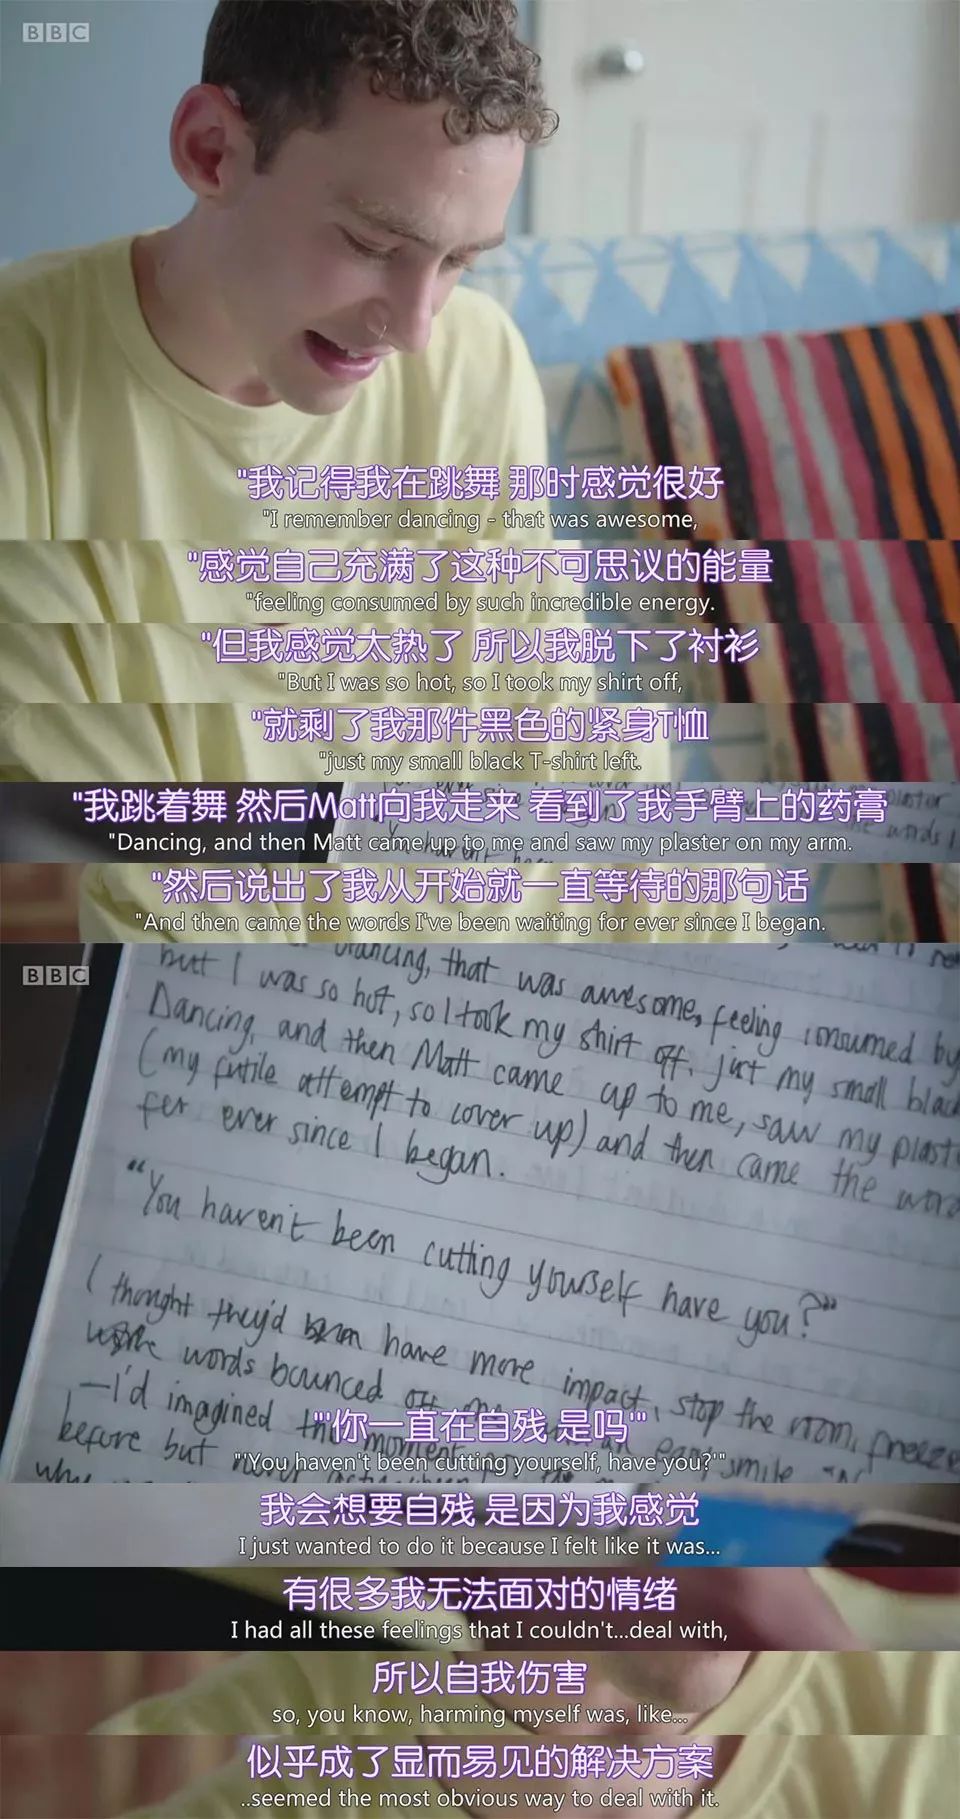 BBC
"我记得我在跳舞 那时感觉很好
"I remember dancing - that was awesome,
"感觉自己充满了这种不可思议的能量
"feeling consumed by such incredible energy.
"但我感觉太热了 所以我脱下了衬衫
"But I was so hot, so I took my shirt off,
"就剩了我那件黑色的紧身T恤
"just my small black T-shirt left.
"我跳着舞 然后Matt向我走来 看到了我手臂上的药膏
"Dancing, and then Matt came up to me and saw my plaster on my arm.
"然后说出了我从开始就一直等待的那句话
"And then came the words I've been waiting for ever since I began.
BBC
dancing, that was awesome, feeling consumed by
but I was so hot, so I took my shirt off, just my small black
Dancing, and then Matt came up to me, saw my plast
(my futile attempt to cover up) and then came the word
for ever since I began.
"You haven't been cutting yourself have you?"
I thought they'd have more impact, stop the room, freeze
words bounced off
—I'd imagined the moment
before but
"'你一直在自残 是吗'"
"'You haven't been cutting yourself, have you?'"
我会想要自残 是因为我感觉
I just wanted to do it because I felt like it was...
有很多我无法面对的情绪
I had all these feelings that I couldn't...deal with,
所以自我伤害
so, you know, harming myself was, like...
似乎成了显而易见的解决方案
..seemed the most obvious way to deal with it.